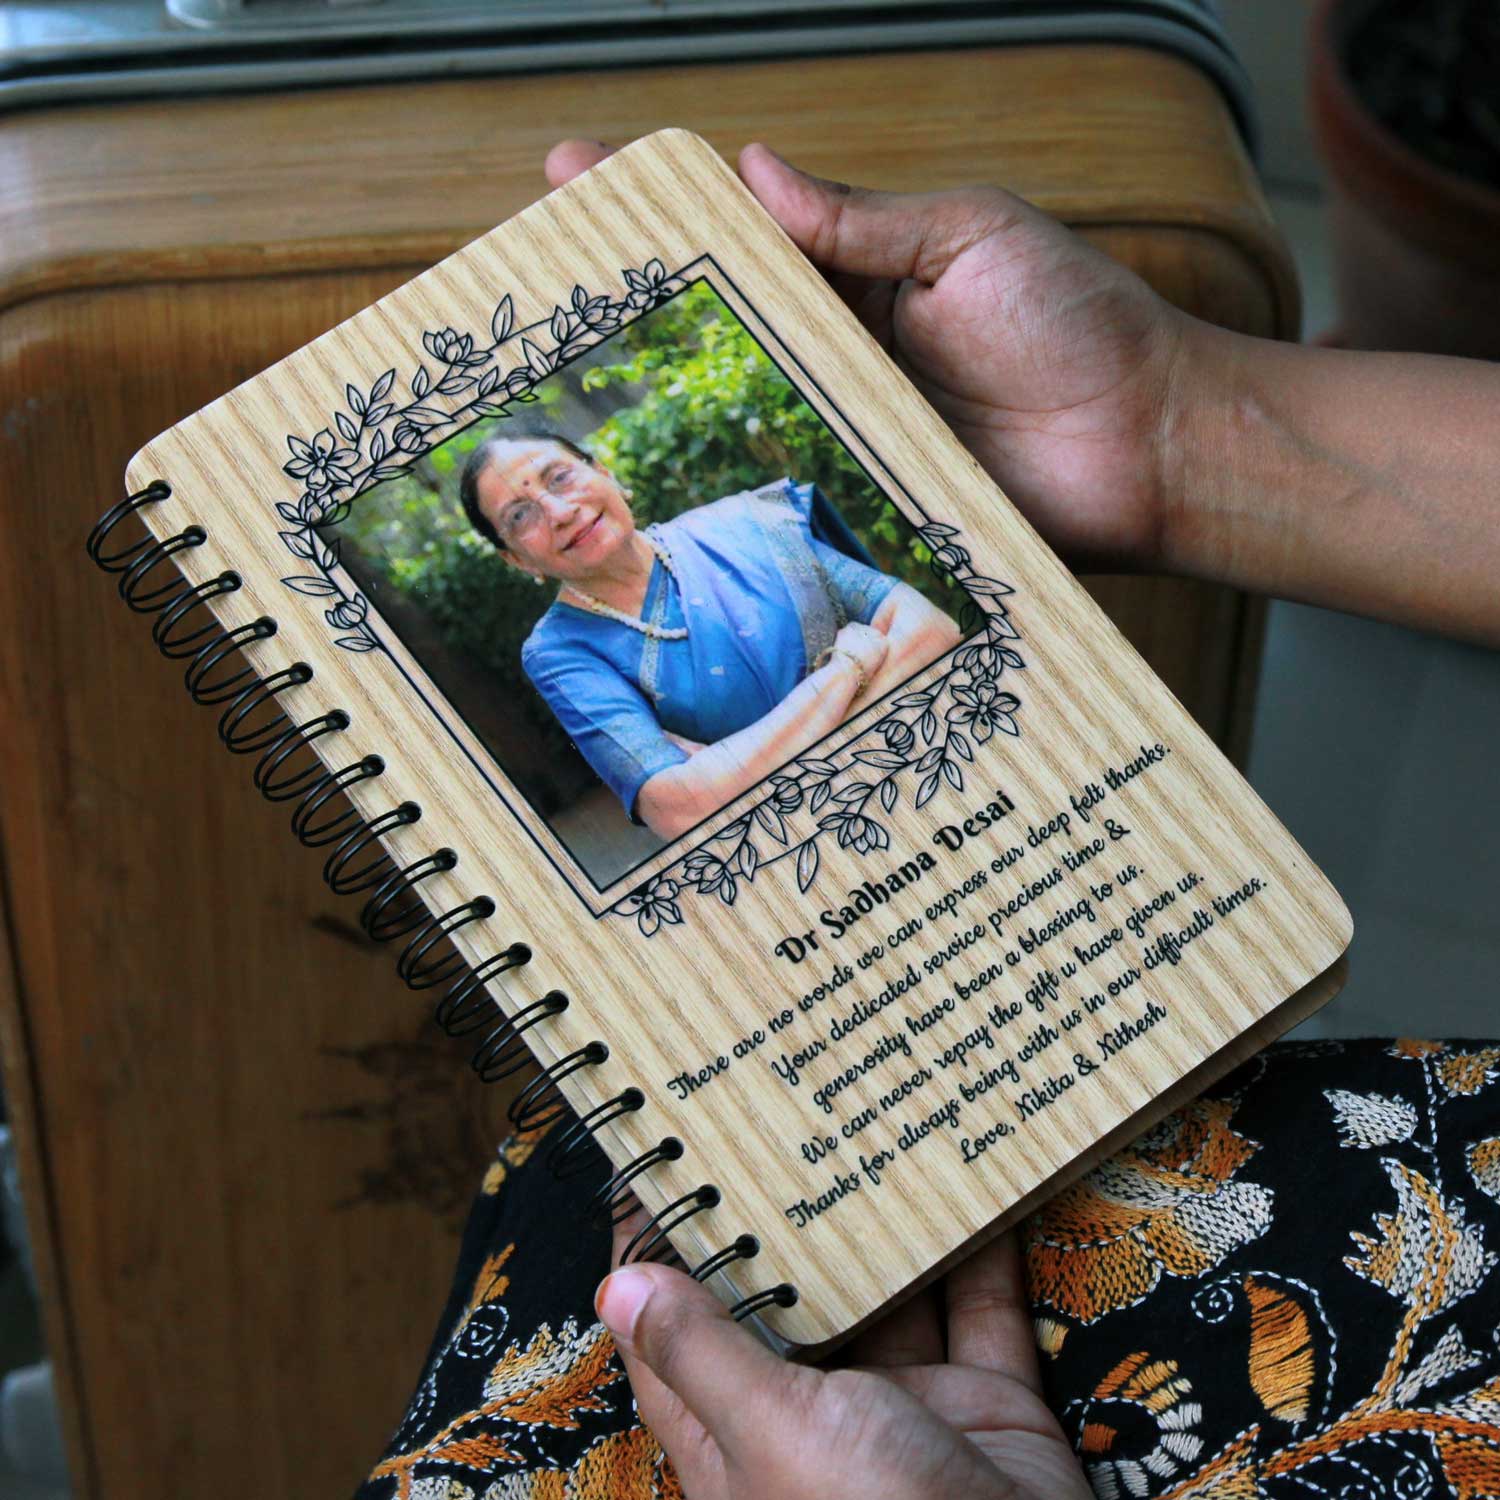 Dr Sadhana Desai
There are no words we can express our deep felt thanks.
Your dedicated service precious time &
generosity have been a blessing to us.
We can never repay the gift u have given us.
Thanks for always being with us in our difficult times.
Love, Nikita & Nithesh